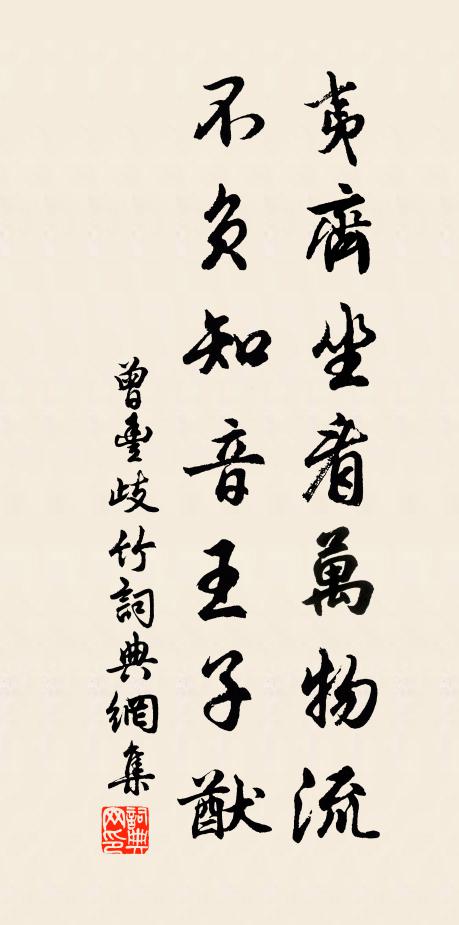 夷齊坐看萬物流
不負知音王子猷
曾豐歧竹詞典網集
詞典網印